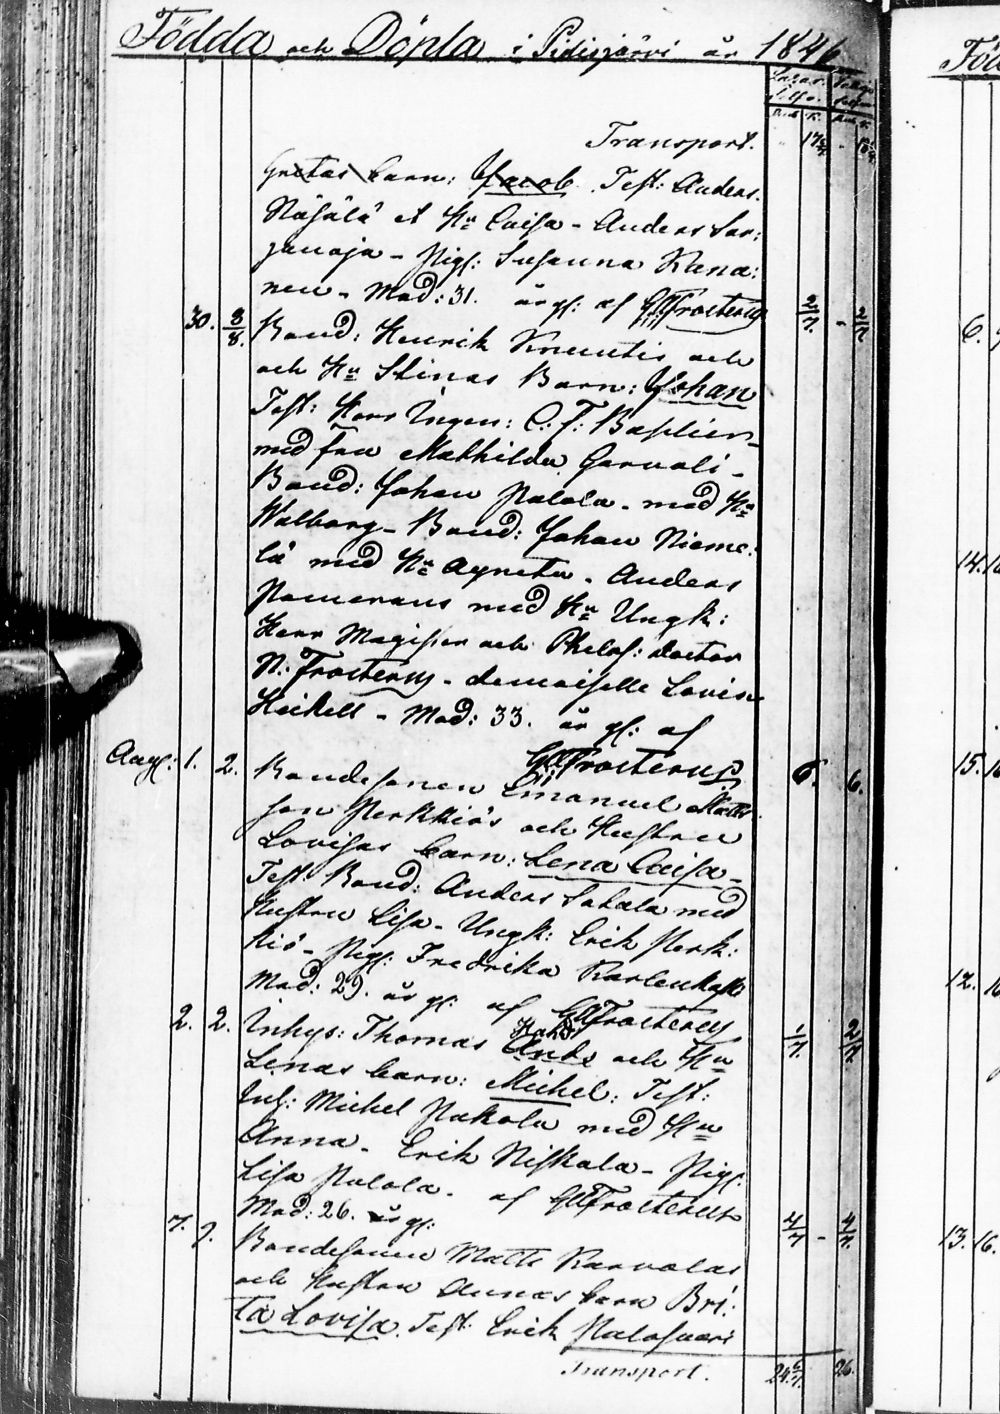 Födda och Döpta i Pidisjärvi år 1846
Transport. 17
Gretas barn: Jacob. Test: Anders
et Hu Caisa - Anders Sar:
janoja - Pig: Susanna Rana:
nen - Mod: 31. år gl: af GFrosterus
30. 8/8. Bond: Henrik Knuutis och 2/7. - 2/7
och Hu Stinas Barn: Johan
Test: Herr Ingen: C. F.
med fru Mathilda
Bond: Johan Palola - med Hu
Walborg - Bond: Johan Nieme:
lä med Hu Agneta. Anders
Pomerans med Hu Ungk:
Herr Magister och Philos: doctor
N: Frosterus - demoiselle Lovisa
Heikell - Mod: 33. år gl: af
GFrosterus
Aug: 1. 2. Bondesonen Emanuel Matts 6. 6.
son Perkkiös och Hustru
Lovisas barn: Lena Caisa -
Test: Bond: Anders Sakala med
Hustru Lisa - Ungk: Erik Perk:
kiö - Pig: Fredrika
Mod: 29. år gl: af GFrosterus
2. 2. Inhys: Thomas och Hu 1/7. 2/7.
Lenas barn: Michel: Test:
Inh: Michel Pakola med Hu
Anna. Erik Niskala - Pig:
Lisa Palola. af GFrosterus
Mod: 26. år gl:
7. 9. Bondesonen Matts Karvolas 4/7 - 4/7.
och Hustru Annas barn Bri:
ta Lovisa. Test: Erik Palosaari
Transport. 24 6/7. 26.
6.
14.
15.
12.
13. 16.